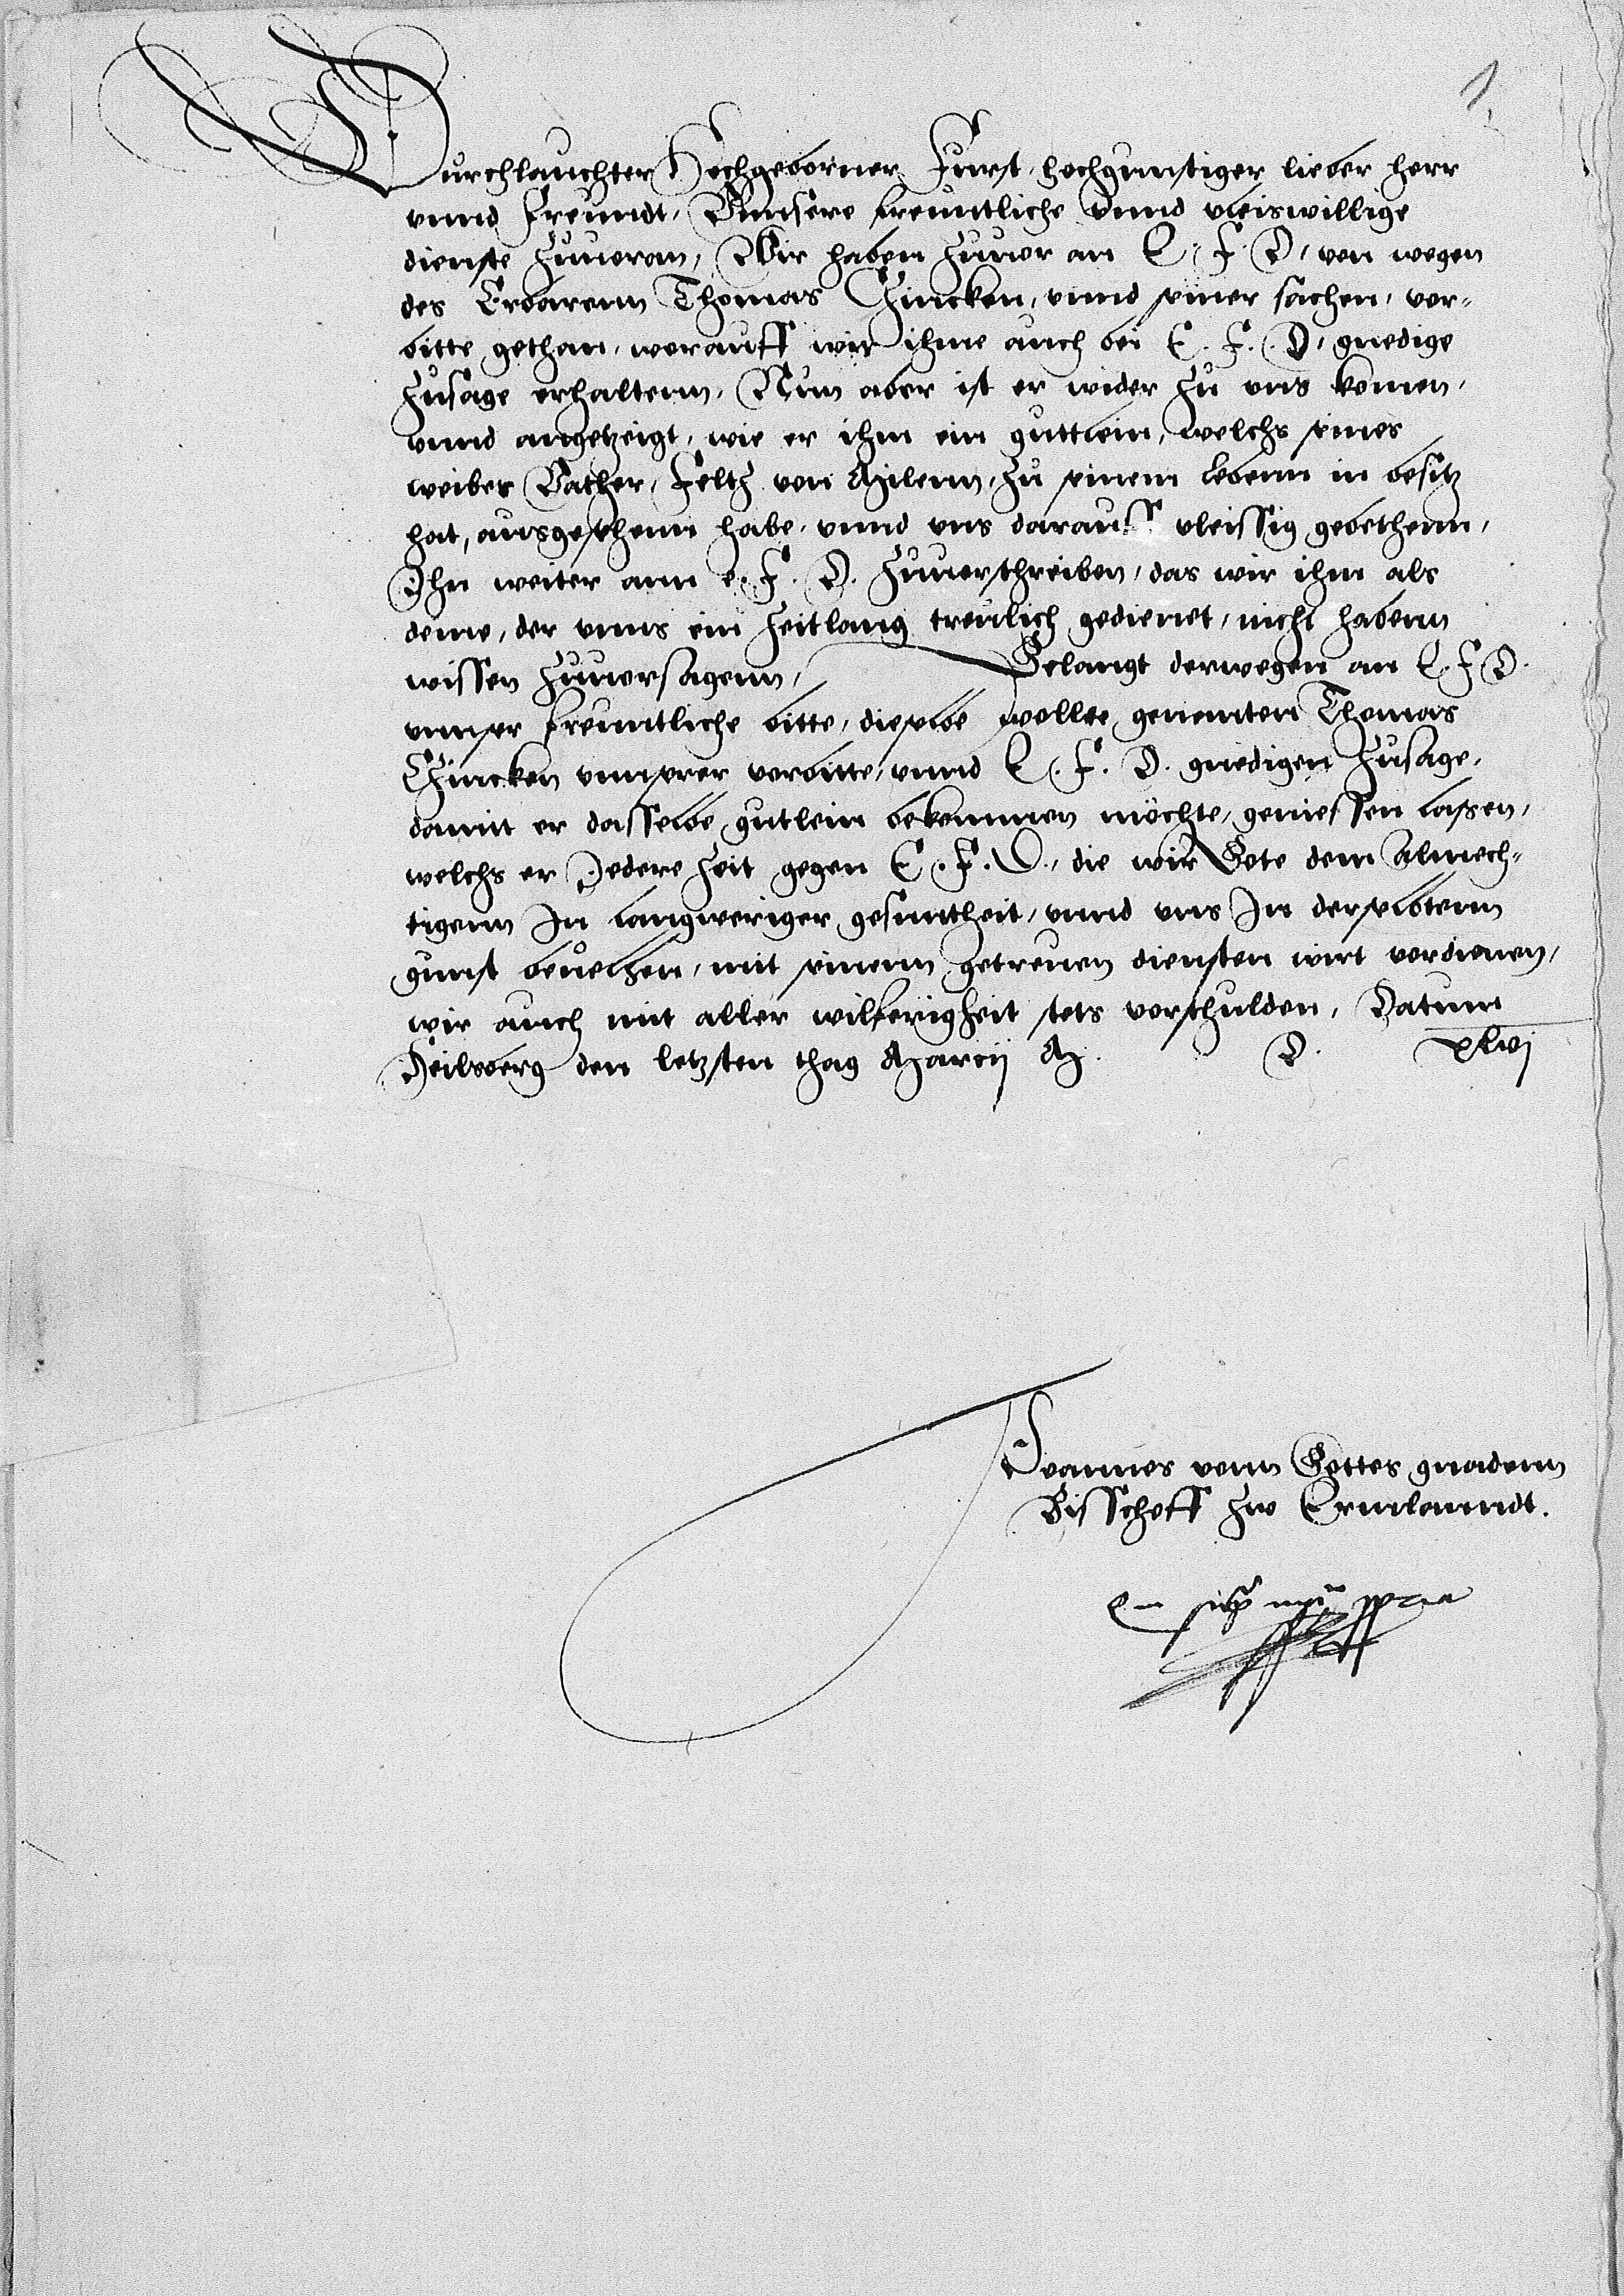 1
Durchlauchter Hochgeborner Furst, hochgunstiger lieber herr
vnnd freundt, Vnnsere freuntliche vnnd vleiswillige
dienste zuuoran, Wir haben zuuor an E. F. D. von wegen
des Erbarenn Thomas Zincken, vnnd seiner sachen, vor-
bitte gethan, worauff wir ihme auch bei E. F. D. gnedige
zusage erhaltenn, Nun aber ist er wider zu vns komen,
vnnd angetzeigt, wie er ihm ein guttlein, welchs seines
weibes Vather, Feltz von Milenn, zu seinem lebenn in besitz
hat, ausgesehenn habe, vnnd vns darauff vleissig gebethenn,
Ihn weiter ann e. F. D. zuuorschreiben, das wir ihm als
deme, der vnns ein zeitlang treulich gedienet, nicht habenn
wissen zuuorsagenn, Gelangt derwegen an E. F. D.
vnnser freuntliche bitte, dieselbe wollte genenten Thomas
Zincken vnnserer vorbitte, vnnd E. F. D. gnedigen zusage,
damit er dasselbe gutlein bekommen möchte, geniessen lassen,
welchs er Jedere zeit gegen E. F. D., die wir Gote dem Almech-
tigenn In langweriger gesuntheit, vnnd vns In derselbtenn
gunst beuelhen, mit seinenn getreuen diensten wirt vordienen,
wir auch mit aller wilferigheit stets vorschulden, Datum
Heilsberg den letzten thag Marcij M. D. xlvj
Joannes vonn Gottes gnadenn
Bisschoff zw Ermlanndt.